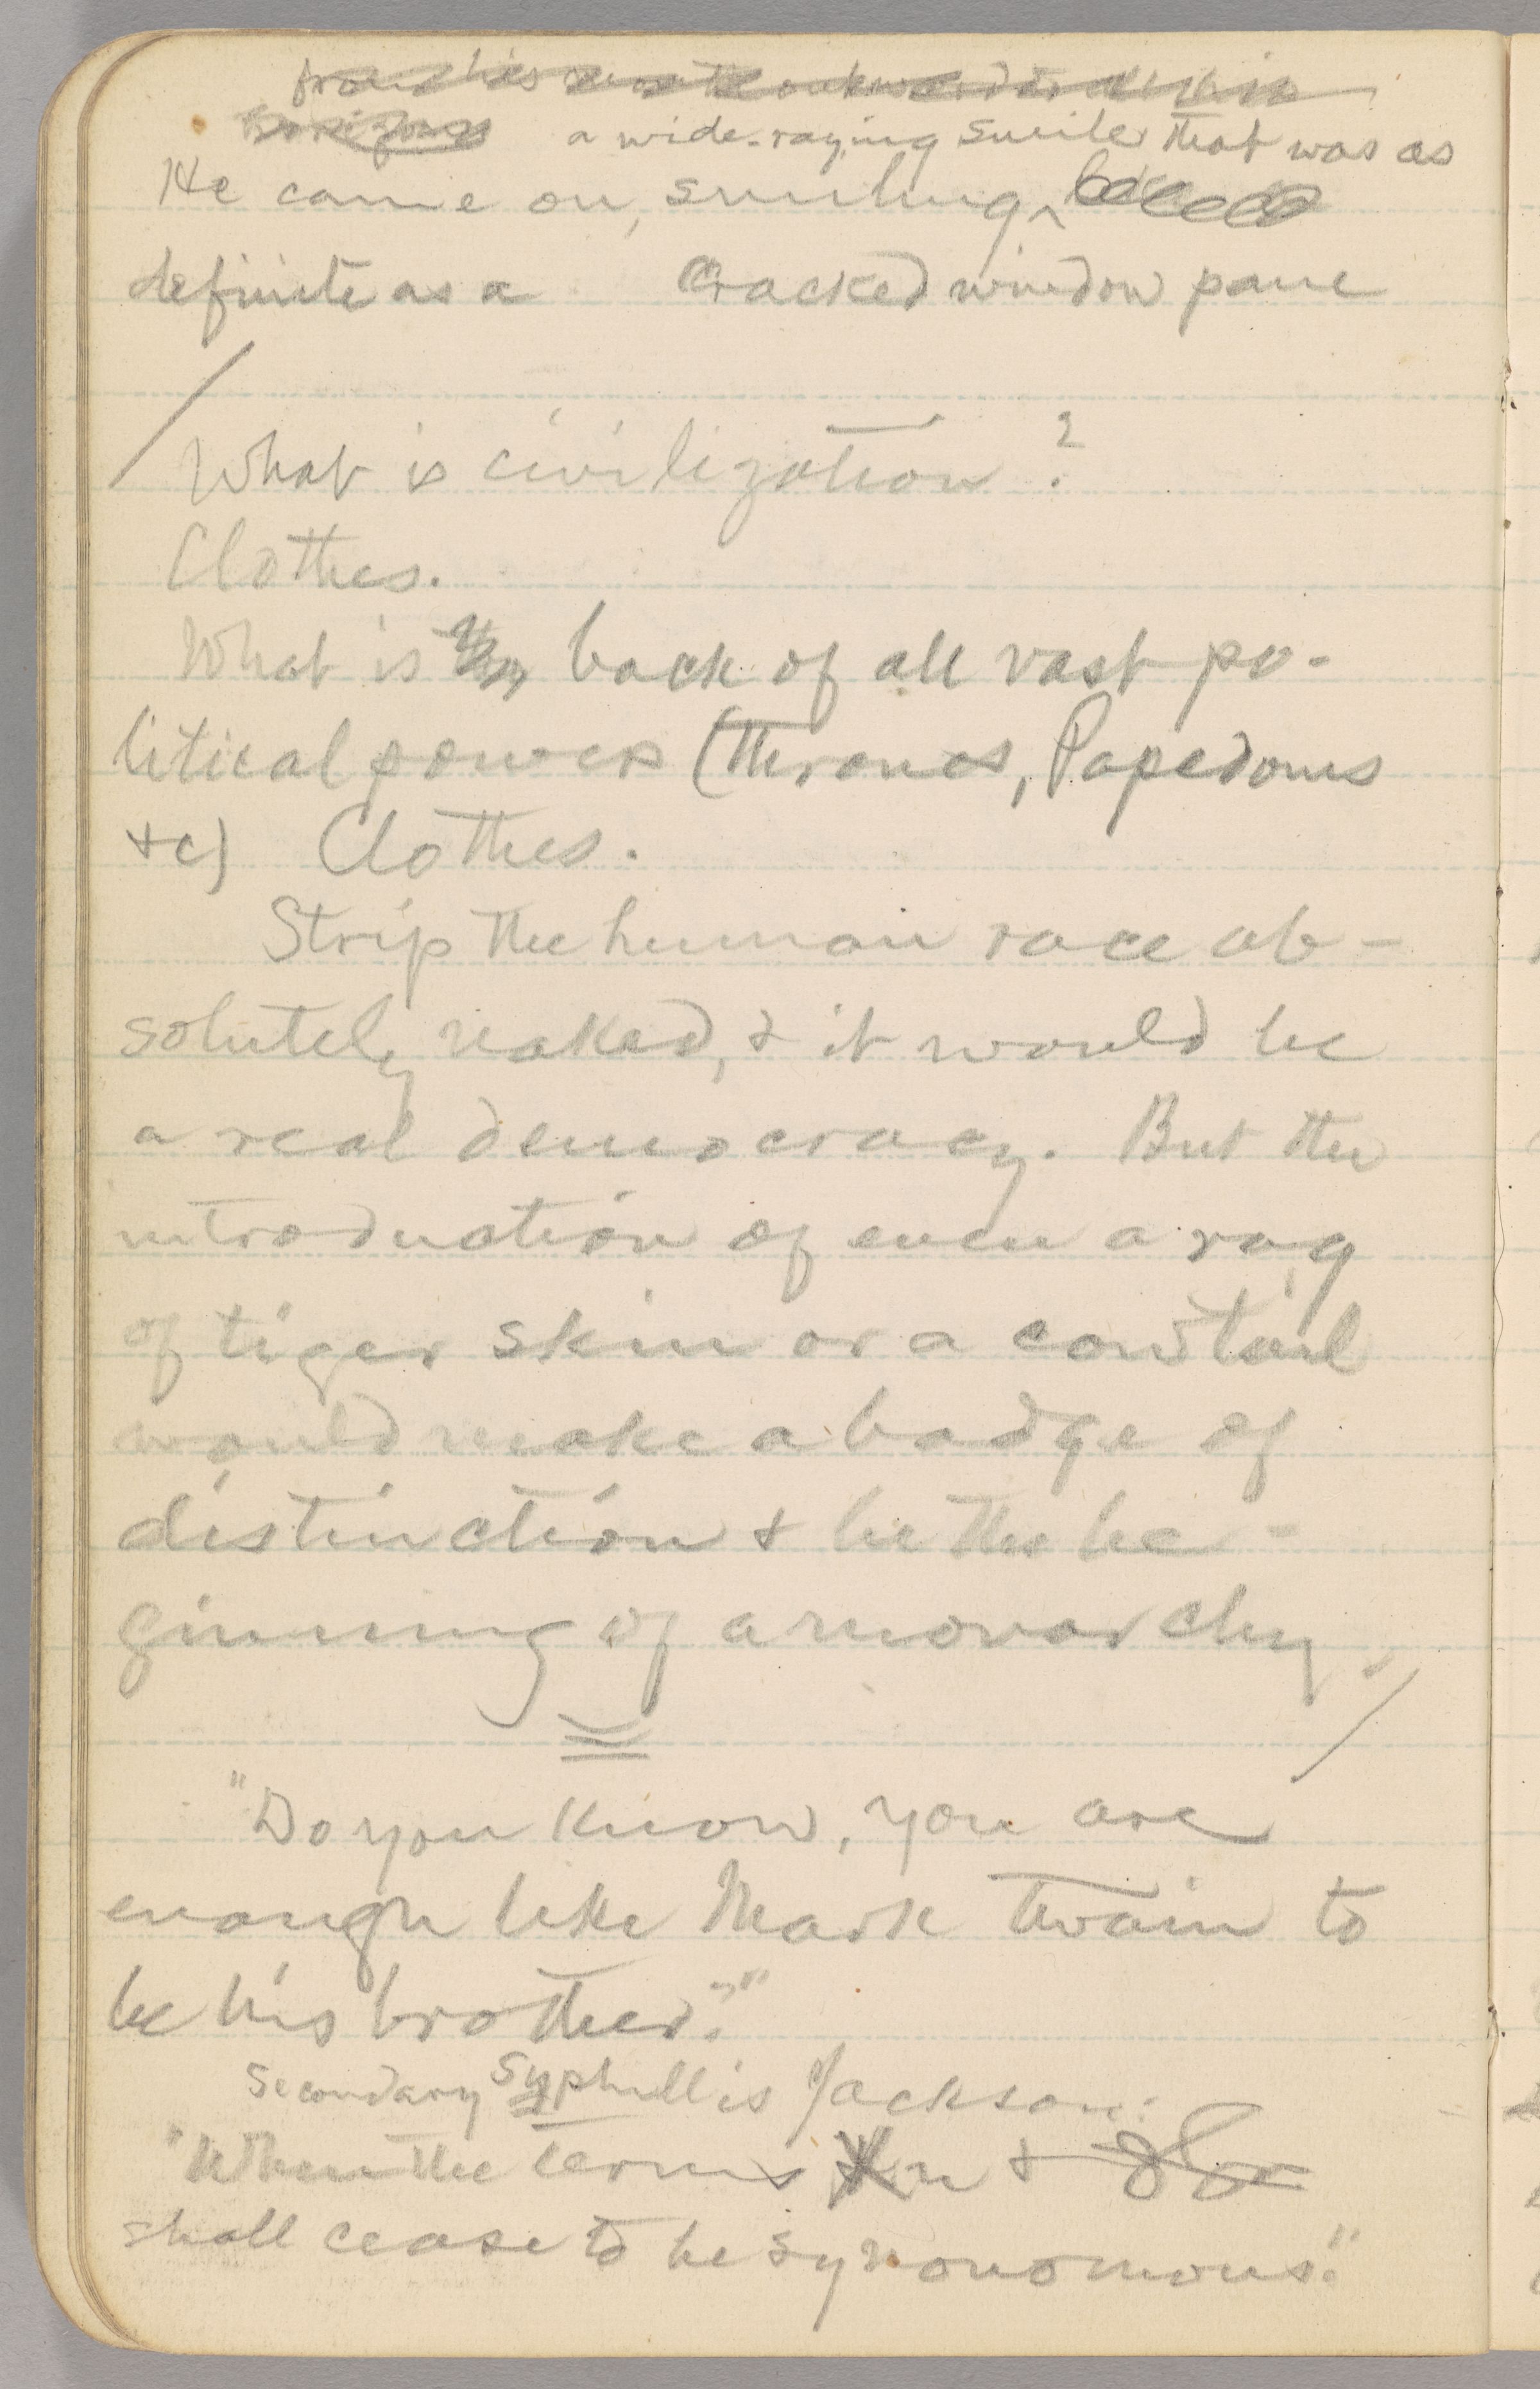 a wide-raying smile that was as
He came on, smiling, ^
definite as a cracked window pane
What is civilization?
Clothes.
What is back of all vast po-
litical powers (thrones, Papedoms
&c) Clothes.
Strip the human race ab-
solutely naked, & it would be
a real democracy. But the
introduction of even a rag
of tiger skin or a cowtail
would make a badge of
distinction & be the be-
ginning of a monarchy.
"Do you know, you are
enough like Mark Twain to
be his brother?"
Secondary Syphillis Jackson:
"When the terms &
shall cease to be synonomous."